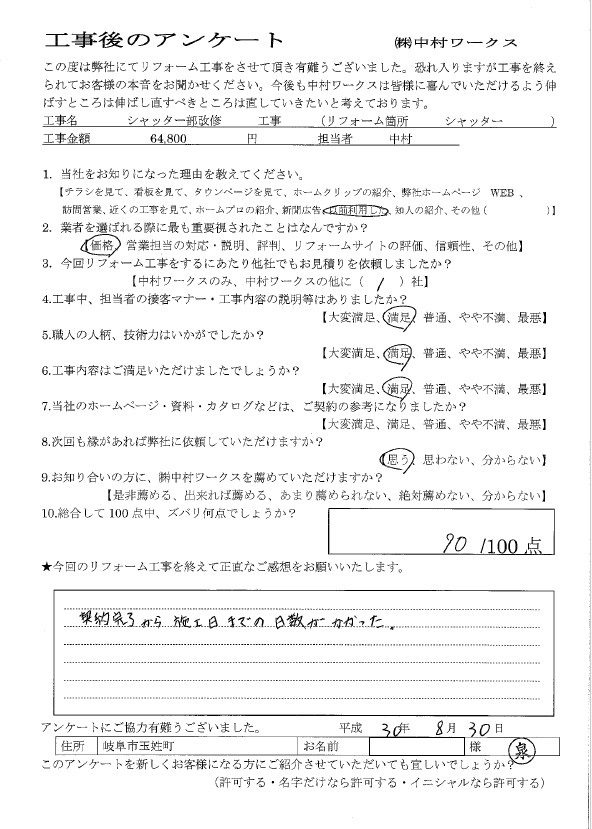 工事後のアンケート ㈱中村ワークス
この度は弊社にてリフォーム工事をさせて頂き有難うございました。恐れ入りますが工事を終え
られてお客様の本音をお聞かせください。今後も中村ワークスは皆様に喜んでいただけるよう伸
ばすところは伸ばし直すべきところは直していきたいと考えております。
工事名 シャッター部改修 工事 （リフォーム箇所 シャッター ）
工事金額 64,800 円 担当者 中村
1. 当社をお知りになった理由を教えてください。
【チラシを見て、看板を見て、タウンページを見て、ホームクリップの紹介、弊社ホームページ WEB 、
訪問営業、近くの工事を見て、ホームプロの紹介、新聞広告、以前利用した、知人の紹介、その他（ ）】
2. 業者を選ばれる際に最も重要視されたことはなんですか？
【価格、営業担当の対応・説明、評判、リフォームサイトの評価、信頼性、その他】
3. 今回リフォーム工事をするにあたり他社でもお見積りを依頼しましたか？
【中村ワークスのみ、中村ワークスの他に（ 1 ）社】
4.工事中、担当者の接客マナー・工事内容の説明等はありましたか？
【大変満足、満足、普通、やや不満、最悪】
5.職人の人柄、技術力はいかがでしたか？
【大変満足、満足、普通、やや不満、最悪】
6.工事内容はご満足いただけましたでしょうか？
【大変満足、満足、普通、やや不満、最悪】
7.当社のホームページ・資料・カタログなどは、ご契約の参考になりましたか？
【大変満足、満足、普通、やや不満、最悪】
8.次回も縁があれば弊社に依頼していただけますか？
【思う、思わない、分からない】
9.お知り合いの方に、㈱中村ワークスを薦めていただけますか？
【是非薦める、出来れば薦める、あまり薦められない、絶対薦めない、分からない】
10.総合して 100 点中、ズバリ何点でしょうか？
90 /100 点
★今回のリフォーム工事を終えて正直なご感想をお願いいたします。
契約完了から施工日までの日数がかかった。
アンケートにご協力有難うございました。 平成 30年 8月 30日
住所 岐阜市玉姓町 お名前 様 泉
このアンケートを新しくお客様になる方にご紹介させていただいても宜しいでしょうか？
（許可する・名字だけなら許可する・イニシャルなら許可する）